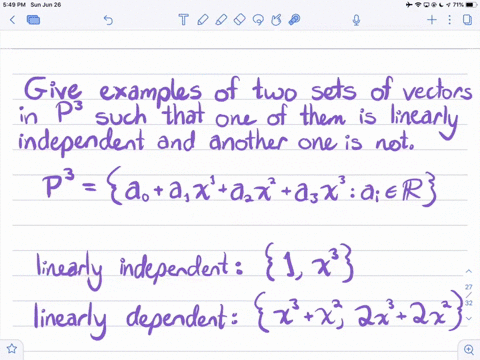 5:49 PM Sun Jun 26
71%
Give examples of two sets of vectors
in P³ such that one of them is linearly
independent and another one is not.
P³ = {a₀+a₁x¹+a₂x²+a₃x³: aᵢ ∈ ℝ}
linearly independent: {1, x³}
linearly dependent: {x³+x², 2x³+2x²}
27
/
32